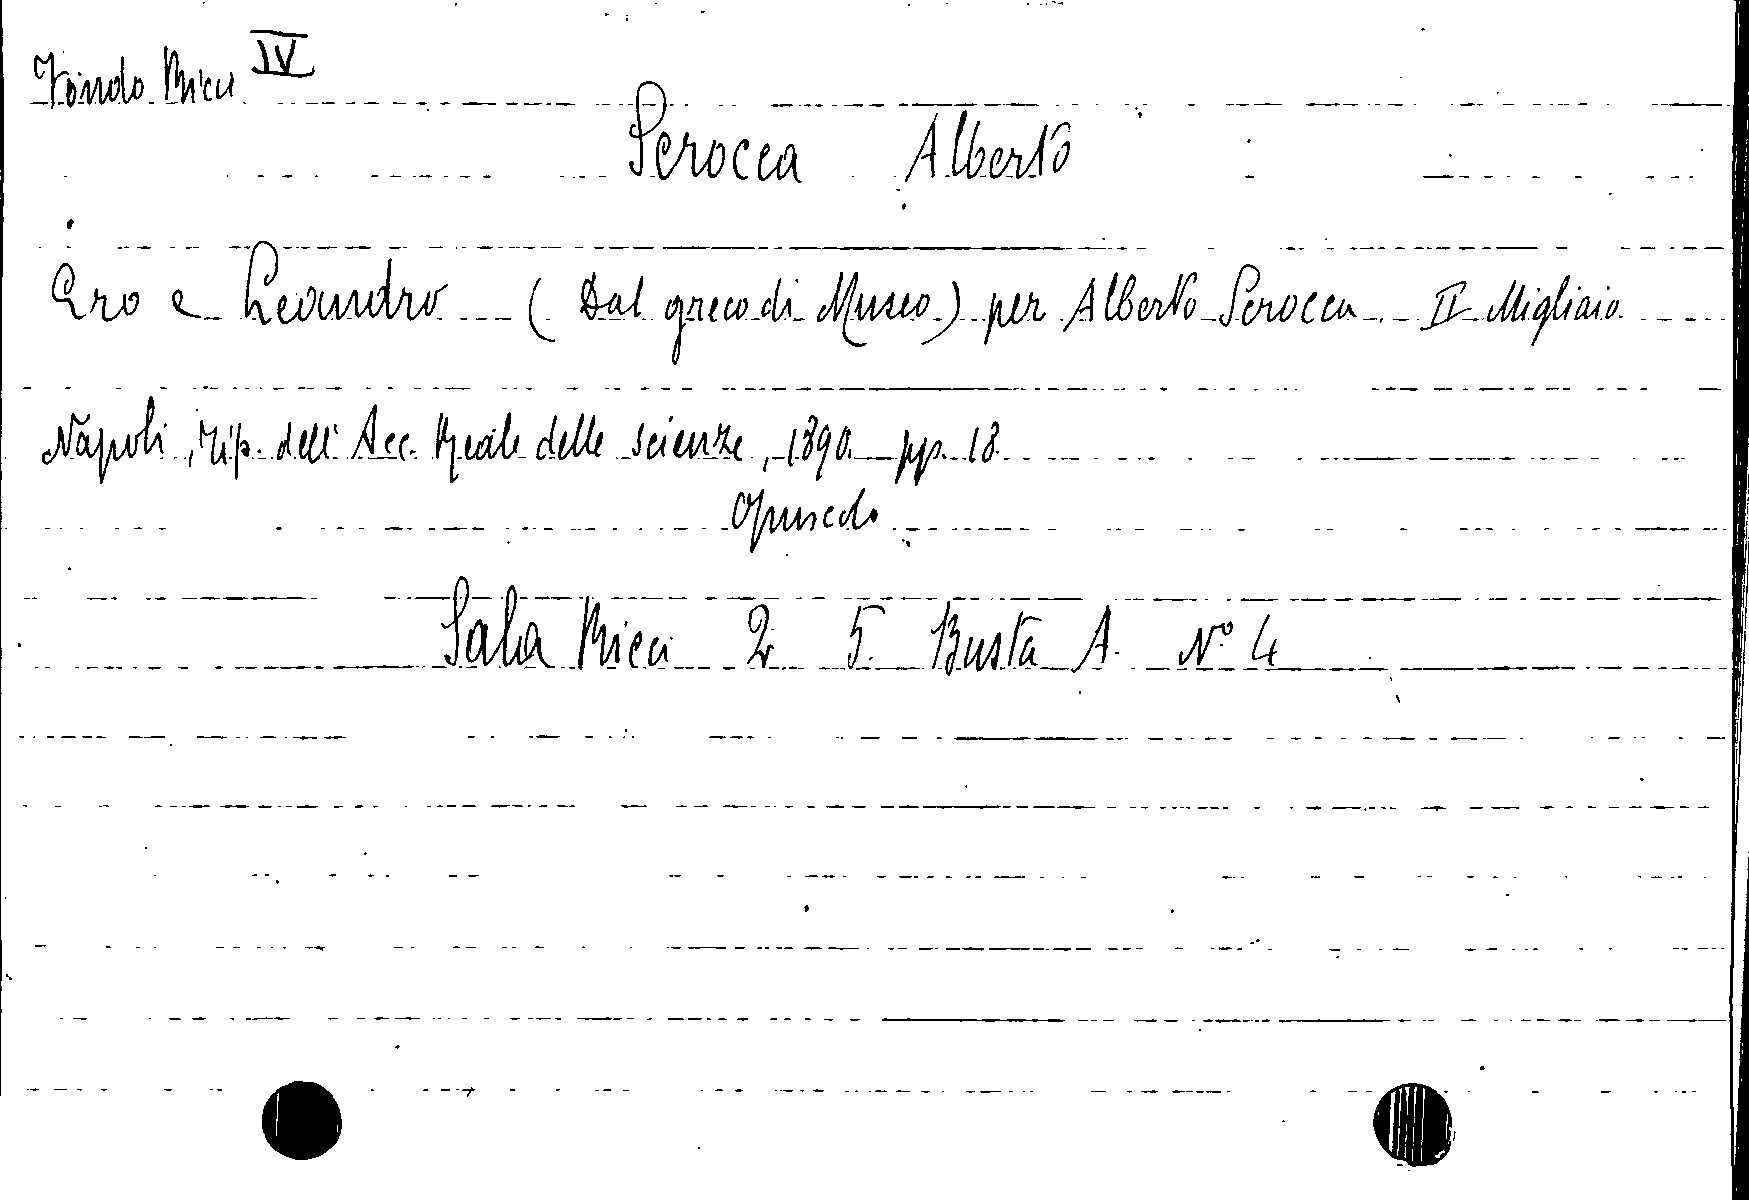 Fondo Ricci IV
Scrocca Alberto
Ero e Leandro ( Dal greco di Museo) per Alberto Scrocca. II Migliaio
Napoli, Tip. dell' Acc. Reale delle scienze, 1890. pp. 18.
Opuscolo
Sala Ricci 2 5. Busta A. N° 4